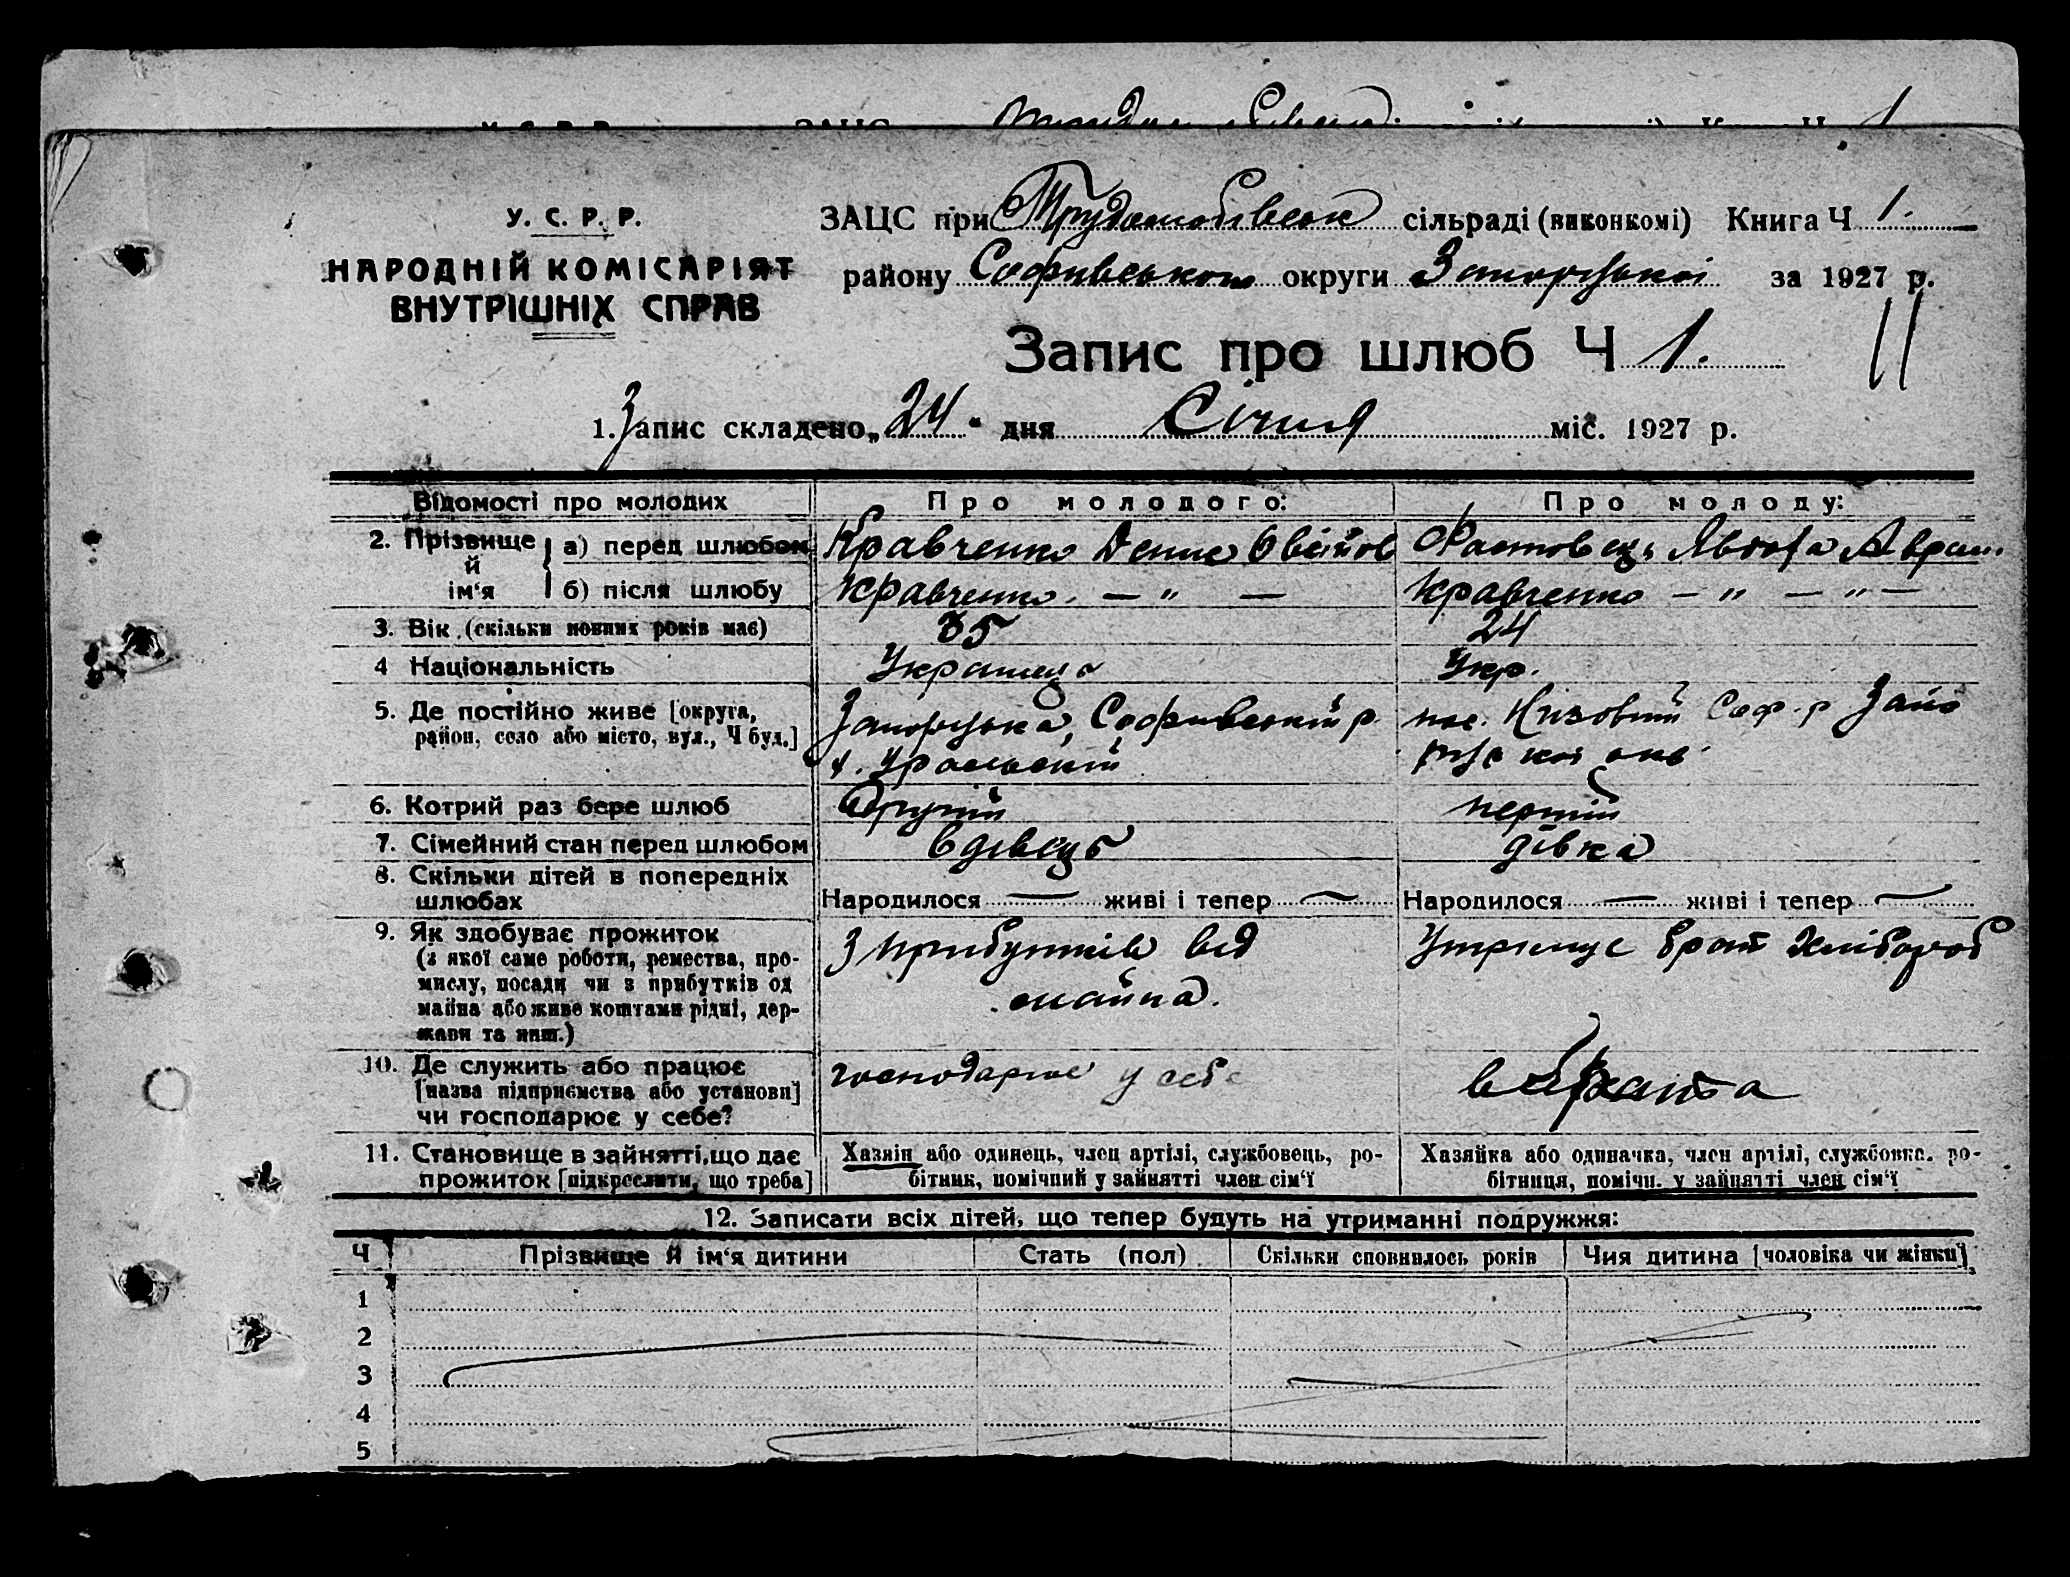 У. С. Р. Р.
НАРОДНІЙ КОМІСАРІЯТ
ВНУТРІШНІХ СПРАВ
ЗАЦС при Трудолюбівськ сільраді (виконкомі) Книга Ч 1.
району Софиївського округи Запорізької за 1927 р.
Запис про шлюб Ч 1.
11
1. Запис складено „24“ дня Січня міс. 1927 р.
Відомості про молодих
Про молодого:
Про молоду:
2. Прізвище й ім‘я
а) перед шлюбом
Кравченко Денис Овсійов
Явдоха Аврам.
б) після шлюбу
Кравченко. — " —
Кравченко — " — " —
3. Вік (скільки повних років має)
35
24
4 Національність
Українець
Укр.
5. Де постійно живе [округа,
район, село або місто, вул., Ч буд.]
Запорізька, Софиївський р.
х. Уральский
пос. Низовий Соф. р Запо
різської окр.
6. Котрий раз бере шлюб
Другий
перший
7. Сімейний стан перед шлюбом
вдівець
дівка
8. Скільки дітей в попередніх
шлюбах
Народилося — живі і тепер —
Народилося — живі і тепер —
9. Як здобуває прожиток
(з якої саме роботи, ремества, про-
мислу, посади чи з прибутків од
майна або живе коштами рідні, дер-
жави та инш.)
З прибутків від
майна.
Утримує брат Хлібороб
10. Де служить або працює
[назва підприємства або установи]
чи господарює у себе?
господарює у себе
в брата
11. Становище в зайнятті, що дає
прожиток [підкреслити, що треба]
Хазяїн або одинець, член артілі, службовець, ро-
бітник, помічний у зайнятті член сім‘ї
Хазяйка або одиначка, член артілі, службовка, ро-
бітниця, помічн. у зайнятті член сім‘ї
12. Записати всіх дітей, що тепер будуть на утриманні подружжя:
Ч
Прізвище й ім‘я дитини
Стать (пол)
Скільки сповнилось років
Чия дитина [чоловіка чи жінки]
1
2
3
4
5